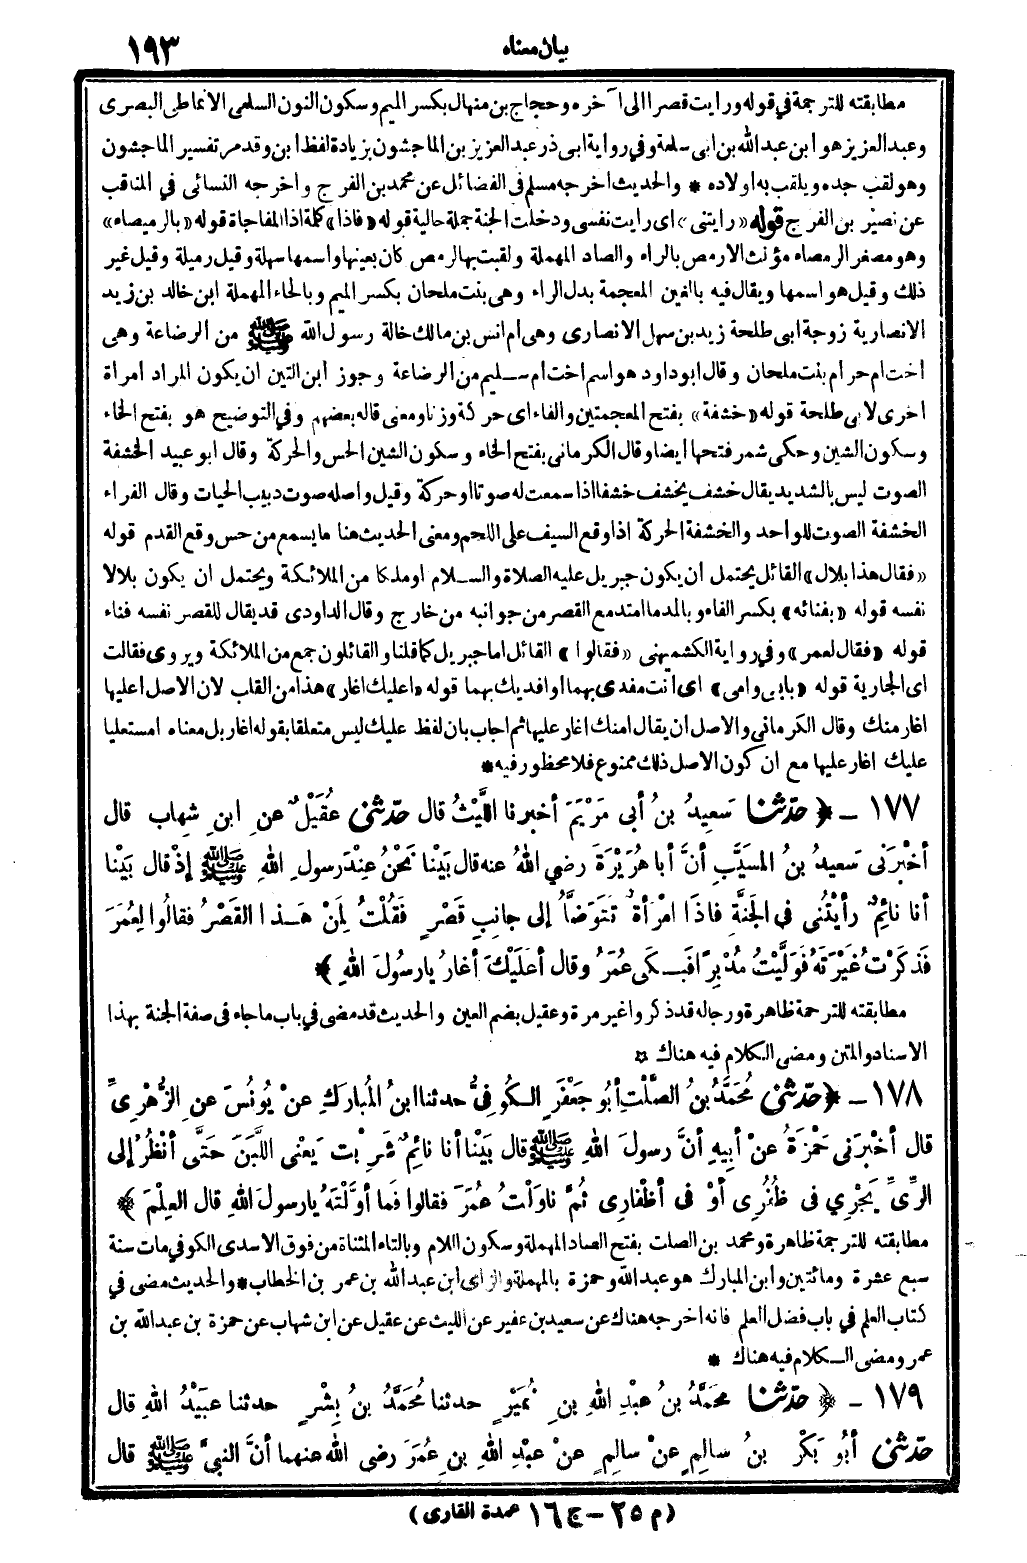 بيان معناه
١٩٣
مطابقته للترجمة في قوله ورايت قصرا الى آخره وحجاج بن منهال بكسر الميم وسكون النون السلمى الانماطى البصرى
وعبد العزيز هو ابن عبد الله بن ابى سلمة وفي رواية ابى ذر عبد العزيز بن الماجشون بزيادة لفظ ابن وقد مر تفسير الماجشون
وهو لقب جده ويلقب به اولاده * والحديث اخرجه مسلم في الفضائل عن محمد بن الفرج واخرجه النسائى في المناقب
عن نصير بن الفرج قوله «رايتنى» اى رايت نفسى ودخلت الجنة جملة حالية قوله «فاذا» كلمة اذا للمفاجاة قوله «بالرميصاء»
وهو مصغر الرمصاء مؤنث الارمص بالراء والصاد المهملة ولقبت بها لرمص كان بعينها واسمها سهلة وقيل رميلة وقيل غير
ذلك وقيل هو اسمها ويقال فيه بالغين المعجمة بدل الراء وهى بنت ملحان بكسر الميم وبالحاء المهملة ابن خالد بن زيد
الانصارية زوجة ابى طلحة زيد بن سهل الانصارى وهى ام انس بن مالك خالة رسول الله ﷺ من الرضاعة وهى
اخت ام حرام بنت ملحان وقال ابو داود هو اسم اخت ام سـليم من الرضاعة وجوز ابن التين ان يكون المراد امراة
اخرى لابى طلحة قوله «خشفة» بفتح المعجمتين والفاء اى حركة وزنا ومعنى قاله بعضهم وفي التوضيح هو بفتح الخاء
وسكون الشين وحكى شمر فتحها ايضا وقال الكرمانى بفتح الخاء وسكون الشين الحس والحركة وقال ابو عبيد الخشفة
الصوت ليس بالشديد يقال خشف يخشف خشفا اذا سمعت له صوتا او حركة وقيل واصله صوت دبيب الحيات وقال الفراء
الخشفة الصوت للواحد والخشفة الحركة اذا وقع السيف على اللحم ومعنى الحديث هنا ما يسمع من حس وقع القدم قوله
«فقال هذا بلال» القائل يحتمل ان يكون جبريل عليه الصلاة والسـلام او ملكا من الملائكة ويحتمل ان يكون بلالا
نفسه قوله «بفنائه» بكسر الفاء وبالمد ما امتد مع القصر من جوانبه من خارج وقال الداودى قد يقال للقصر نفسه فناء
قوله «فقال لعمر» وفي رواية الكشميهنى «فقالوا» القائل اما جبريل كما قلنا والقائلون جمع من الملائكة ويروى فقالت
اى الجارية قوله «بابى وامى» اى انت مفدى بهما او افديك بهما قوله «اعليك اغار» هذا من القلب لان الاصل اعليها
اغار منك وقال الكرمانى والاصل ان يقال امنك اغار عليها ثم اجاب بان لفظ عليك ليس متعلقا بقوله اغار بل معناه امستعليا
عليك اغار عليها مع ان كون الاصل ذلك ممنوع فلا محظور فيه *
١٧٧ - ﴿ حدّثنا سَعِيدُ بنُ أبى مَرْيَمَ أخبرنا اللَّيْثُ قال حدّثنى عُقَيْلٌ عنِ ابنِ شِهابٍ قال
أخْبَرَنى سَعيدُ بنُ المسَيَّبِ أنَّ أبا هُرَيْرَةَ رضي اللهُ عنه قال بَيْنا نَحْنُ عِنْدَ رسولِ اللهِ ﷺ إذْ قال بَيْنا
أنا نائِمٌ رأيْتُنى فى الجَنَّةِ فاذَا امْرأةٌ تَتَوَضَّأُ إلى جانِبِ قَصْرٍ فَقُلْتُ لِمَنْ هَـذا القَصْرُ فقالُوا لِعُمَرَ
فَذَكَرْتُ غَيْرَتَهُ فَوَلَّيْتُ مُدْبِرًا فَبَـكَى عُمَرُ وقال أعَلَيْكَ أغارُ يارسُولَ اللهِ ﴾
مطابقته للترجمة ظاهرة ورجاله قد ذكروا غير مرة وعقيل بضم العين والحديث قد مضى في باب ما جاء فى صفة الجنة بهذا
الاسناد والمتن ومضى الـكلام فيه هناك *
١٧٨ - ﴿ حدّثنى مُحَمَّدُ بنُ الصَّلْتِ أبُو جَعْفَرٍ الـكُوفىُّ حدثنا ابنُ المُبارَكِ عنْ يُونُسَ عنِ الزُّهْرِىِّ
قال أخْبَرَنى حَمْزَةُ عنْ أبِيهِ أنَّ رسولَ اللهِ ﷺ قال بَيْنا أنا نائِمٌ شَرِبْتُ يَعْنى اللَّبَنَ حَتَّى أنْظُرُ إلى
الرِّىِّ يَجْرِي فى ظُفُرِى أوْ فى أظْفارِى ثُمَّ ناوَلْتُ عُمَرَ فقالوا فَما أوَّلْتَهُ يارسولَ اللهِ قال العِلْمَ ﴾
مطابقته للترجمة ظاهرة ومحمد بن الصلت بفتح الصاد المهملة وسكون اللام وبالتاء المثناة من فوق الاسدى الكوفي مات سنة
سبع عشرة ومائتين وابن المبارك هو عبد الله وحمزة بالمهملة والزاى ابن عبد الله بن عمر بن الخطاب * والحديث مضى في
كتاب العلم في باب فضل العلم فانه اخرجه هناك عن سعيد بن عفير عن الليث عن عقيل عن ابن شهاب عن حمزة بن عبد الله بن
عمر ومضى الـكلام فيه هناك *
١٧٩ - ﴿ حدّثنا محَمَّدُ بنُ عبْدِ اللهِ بنِ نُمَيْرٍ حدثنا مُحَمَّدُ بنُ بِشْرٍ حدثنا عبَيْدُ اللهِ قال
حدّثنى أبُو بَكْرِ بنُ سالِمٍ عنْ سالِمٍ عنْ عبْدِ اللهِ بنِ عُمَرَ رضى الله عنهما أنَّ النبىَّ ﷺ قال
(م ٢٥ - ج ١٦ عمدة القارى)